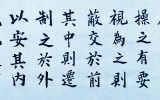 操之有要
視為之則
蔽交於前
其中則遷
制之於外
以安其內